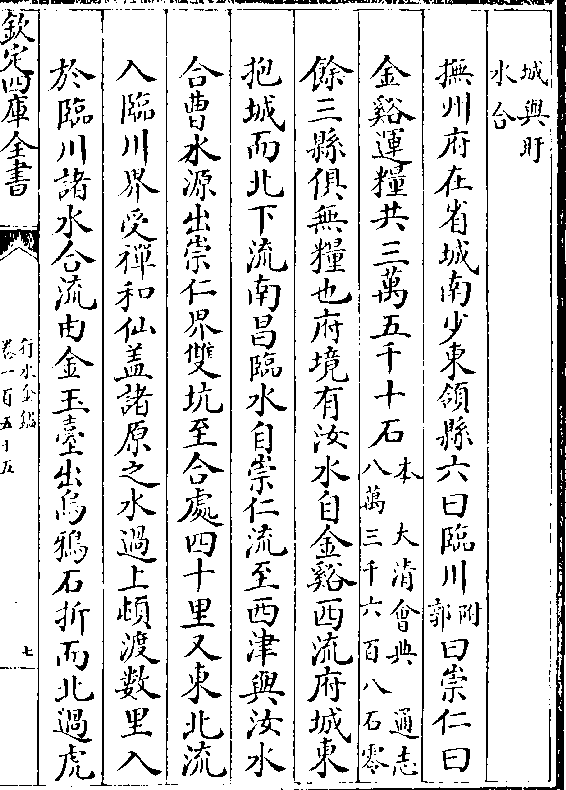 城與盱
水合
撫州府在省城南少東領縣六曰臨川附郭曰崇仁曰
金谿運糧共三萬五千十石本大清會典通志八萬三千六百八石零
餘三縣俱無糧也府境有汝水自金谿西流府城東
抱城而北下流南昌臨水自崇仁流至西津與汝水
合曹水源出崇仁界雙坑至合處四十里又東北流
入臨川界受禪和仙蓋諸原之水過上頓渡數里入
於臨川諸水合流由金玉臺出烏鴉石折而北過虎
欽定四庫全書
行水金鑑
卷一百五十五
七